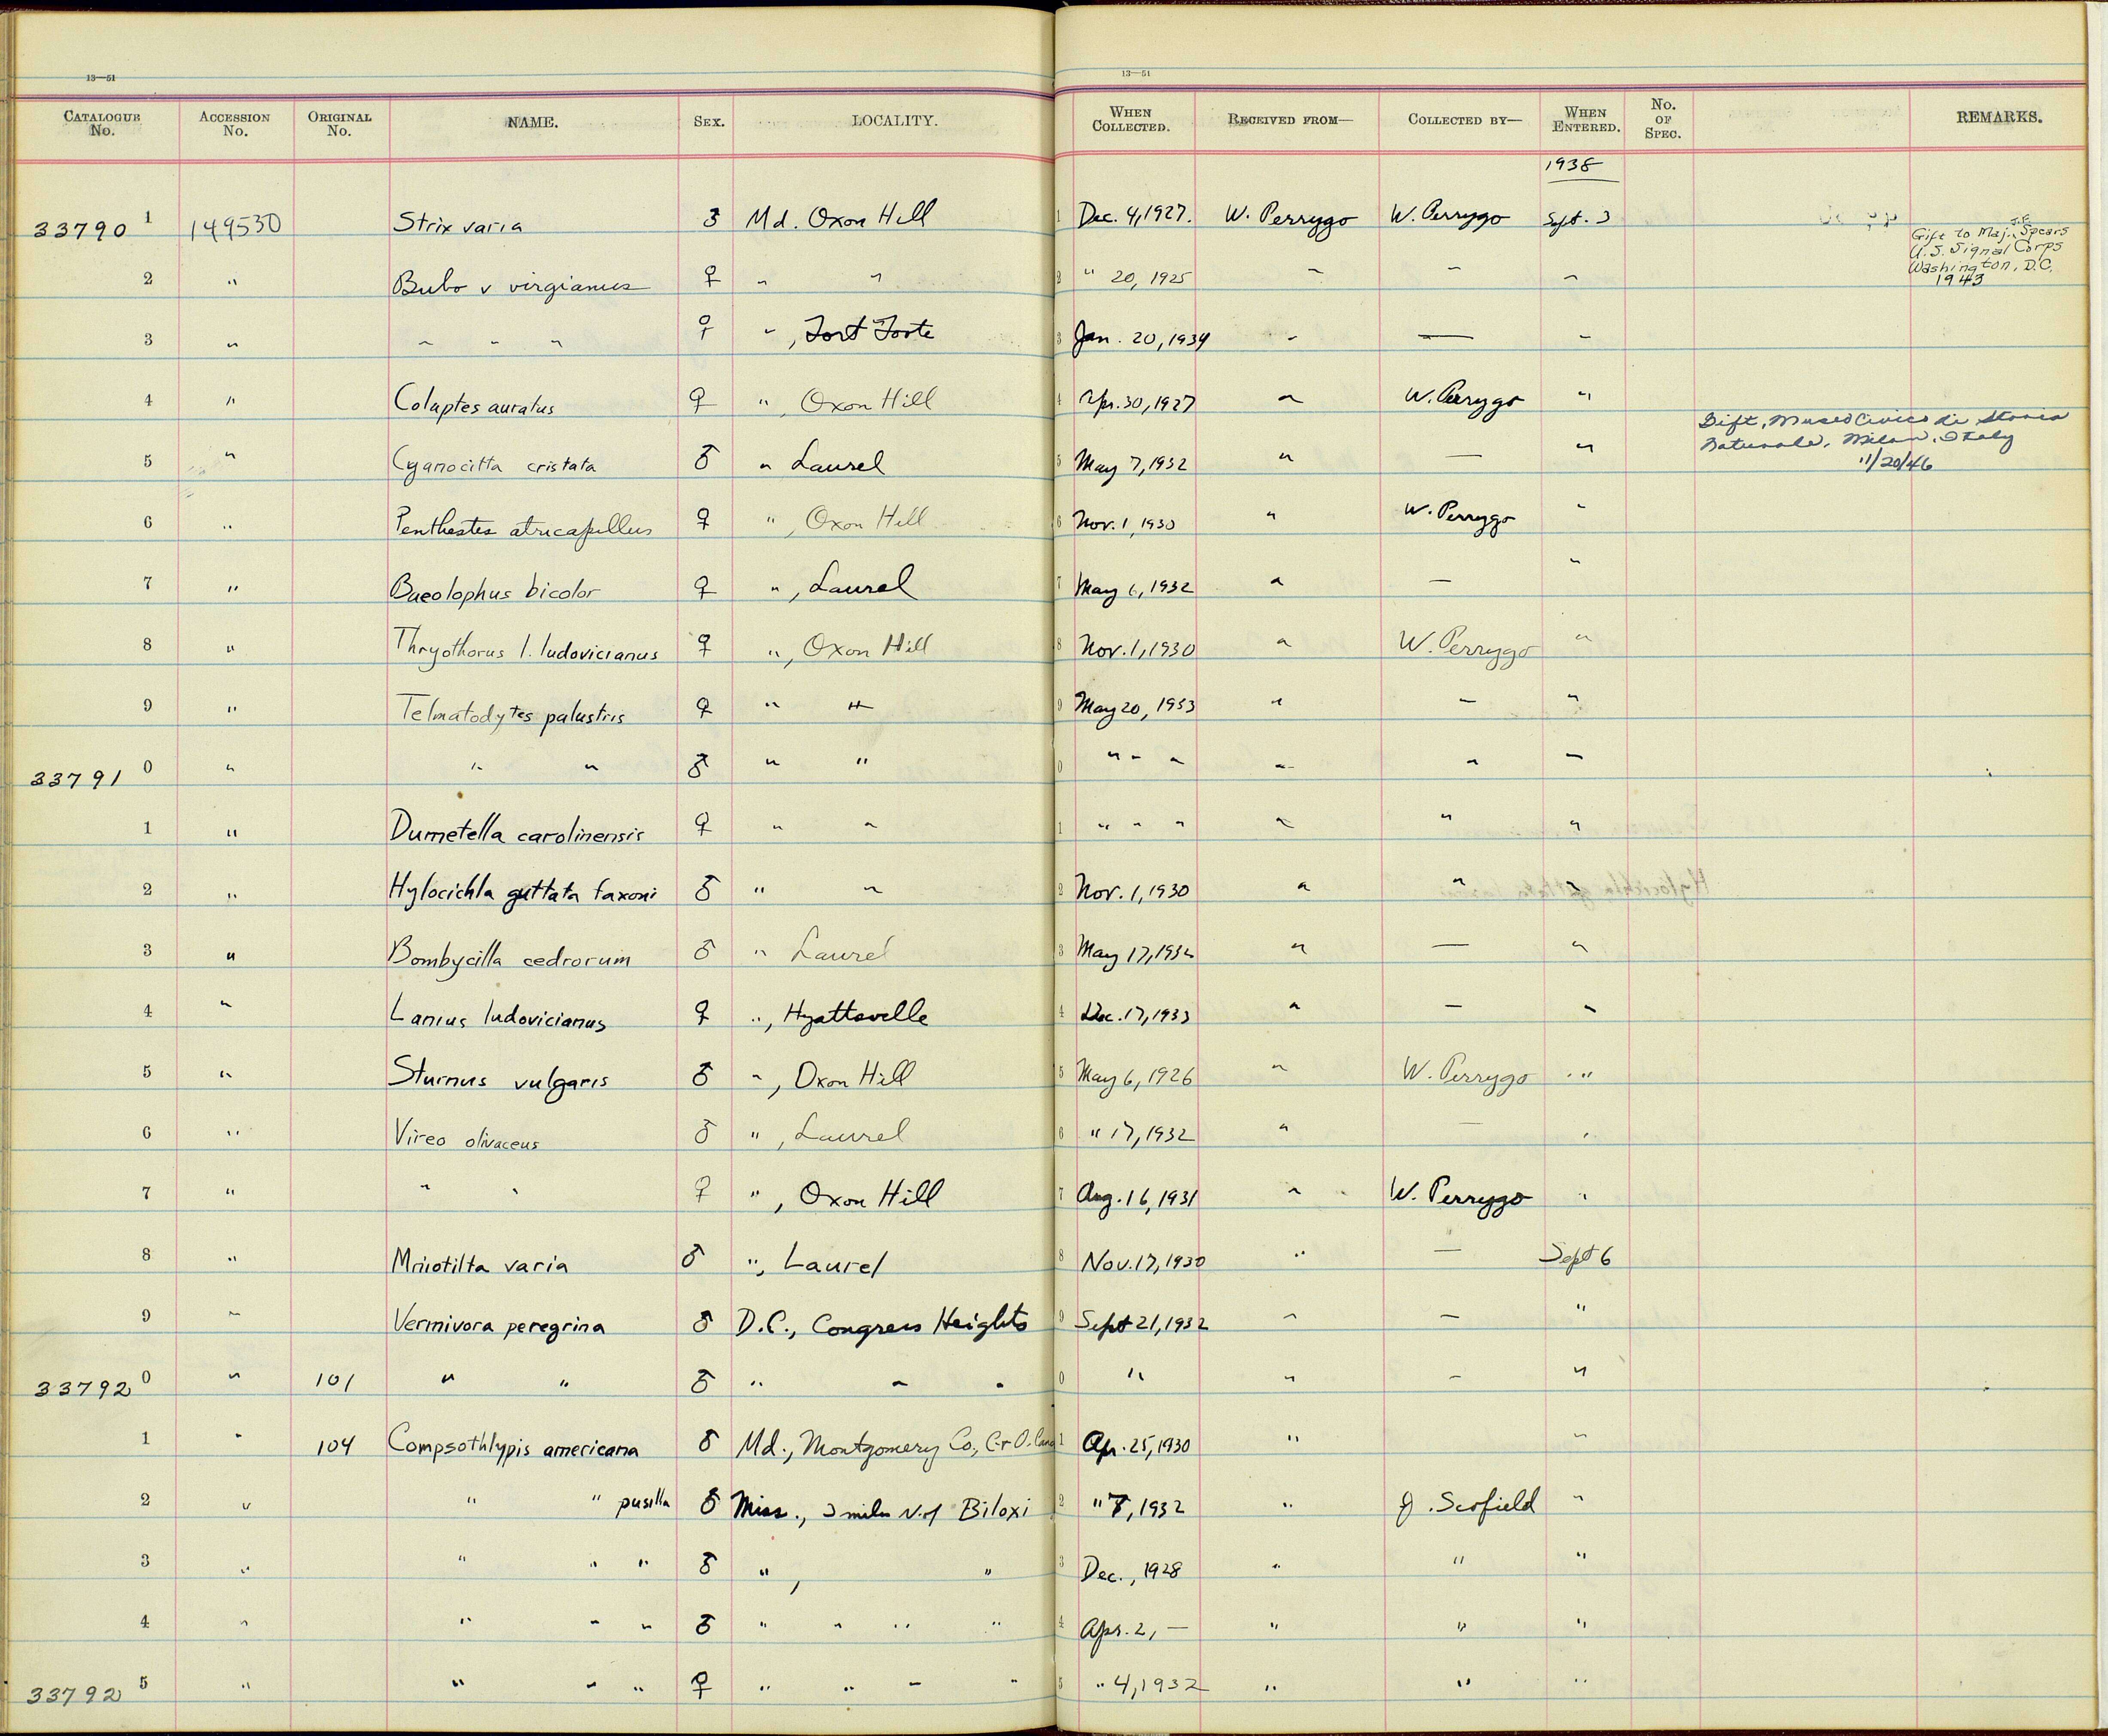 13—51
13—51
CATALOGUE No. ACCESSION No. ORIGINAL No. NAME. SEX. LOCALITY. WHEN COLLECTED. RECEIVED FROM— COLLECTED BY— WHEN ENTERED. No. OF SPEC. REMARKS.
1938
33790 1 149530 Strix varia ♂ Md. Oxon Hill 1 Dec. 4, 1927. W. Perrygo W. Perrygo Sept. 3
Gift to Maj. J.F. Spears
U.S. Signal Corps
Washington, D.C.
1943
2 " Bubo v virgianus ♀ " " 2 " 20, 1925 " — "
3 " " " " ♀ ", Fort Foote 3 Jan. 20, 1934 " — "
4 " Colaptes auratus ♀ ", Oxon Hill 4 Apr. 30, 1927 " W. Perrygo "
Gift, Museo Civico di Storia
Naturale, Milan, Italy
11/20/46
5 " Cyanocitta cristata ♂ " Laurel 5 May 7, 1932 " — "
6 " Penthestes atricapillus ♀ ", Oxon Hill 6 Nov. 1, 1930 " W. Perrygo "
7 " Baeolophus bicolor ♀ ", Laurel 7 May 6, 1932 " — "
8 " Thryothorus l. ludovicianus ♀ ", Oxon Hill 8 Nov. 1, 1930 " W. Perrygo "
9 " Telmatodytes palustris ♀ " " 9 May 20, 1933 " — "
33791 0 " " " ♂ " " 0 " " " " " "
1 " Dumetella carolinensis ♀ " " 1 " " " " " "
2 " Hylocichla guttata faxoni ♂ " " 2 Nov. 1, 1930 " " "
3 " Bombycilla cedrorum ♂ " Laurel 3 May 17, 1932 " — "
4 " Lanius ludovicianus ♀ ", Hyattsville 4 Dec. 17, 1933 " — "
5 " Sturnus vulgaris ♂ ", Oxon Hill 5 May 6, 1926 " W. Perrygo "
6 " Vireo olivaceus ♂ ", Laurel 6 " 17, 1932 " — "
7 " " " ♀ ", Oxon Hill 7 Aug. 16, 1931 " W. Perrygo "
8 " Mniotilta varia ♂ ", Laurel 8 Nov. 17, 1930 " — Sept 6
9 " Vermivora peregrina ♂ D.C., Congress Heights 9 Sept 21, 1932 " — "
33792 0 " 101 " " ♂ " " " 0 " " — "
1 " 104 Compsothlypis americana ♂ Md., Montgomery Co., C + O. Canal 1 Apr. 25, 1930 " "
2 " " " pusilla ♂ Miss., 3 miles N. of Biloxi 2 " 8, 1932 " J. Scofield "
3 " " " " ♂ ", " 3 Dec., 1928 " " "
4 " " " " ♂ " " " " 4 Apr. 2, — " " "
33792 5 " " " " ♀ " " " " 5 " 4, 1932 " " "